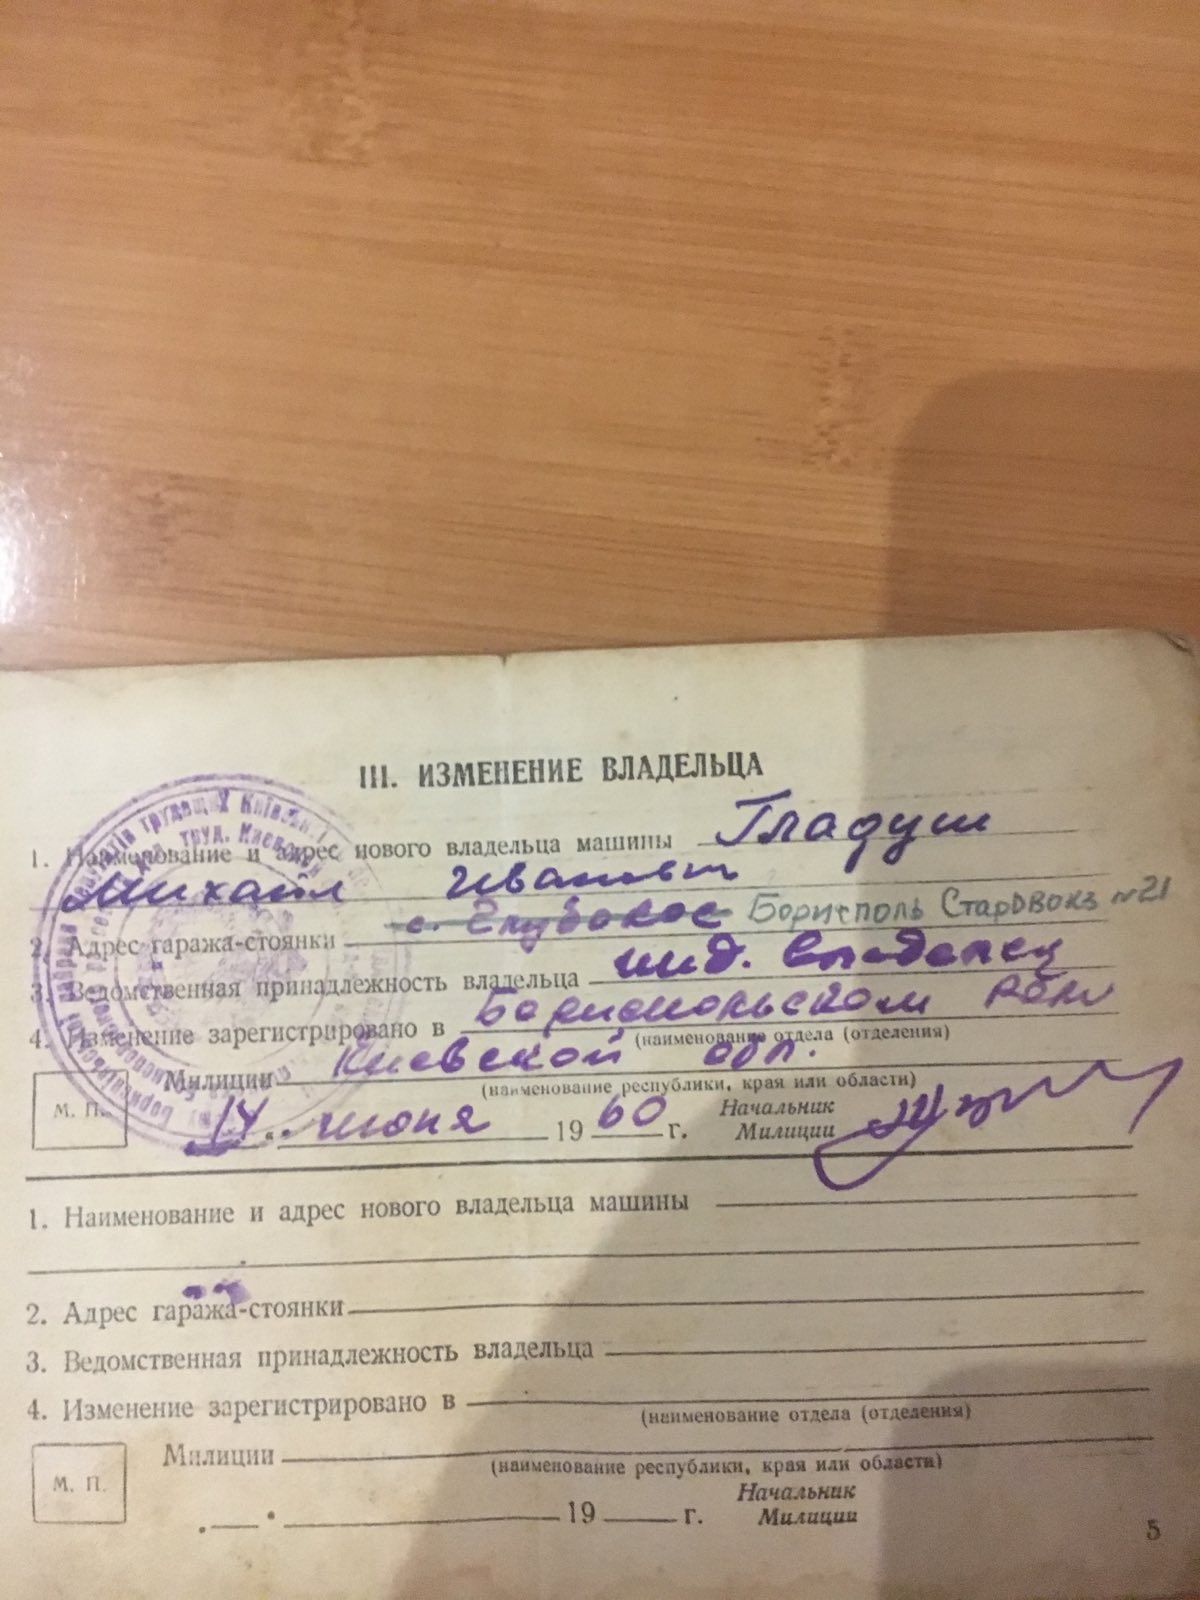 III. ИЗМЕНЕНИЕ ВЛАДЕЛЬЦА
1. Наименование и адрес нового владельца машины Гладуш
Михаил Иванович
2. Адрес гаража-стоянки с. Глубокое Борисполь Старовокз №21
3. Ведомственная принадлежность владельца инд. владелец
4. Изменение зарегистрировано в Бориспольском
(наименование отдела (отделения)
Милиции Киевской обл.
(наименование республики, края или области)
М. П.
14 июня 1960 г. Начальник
Милиции
1. Наименование и адрес нового владельца машины
2. Адрес гаража-стоянки
3. Ведомственная принадлежность владельца
4. Изменение зарегистрировано в
(наименование отдела (отделения)
Милиции
(наименование республики, края или области)
М. П.
19 г. Начальник
Милиции
5